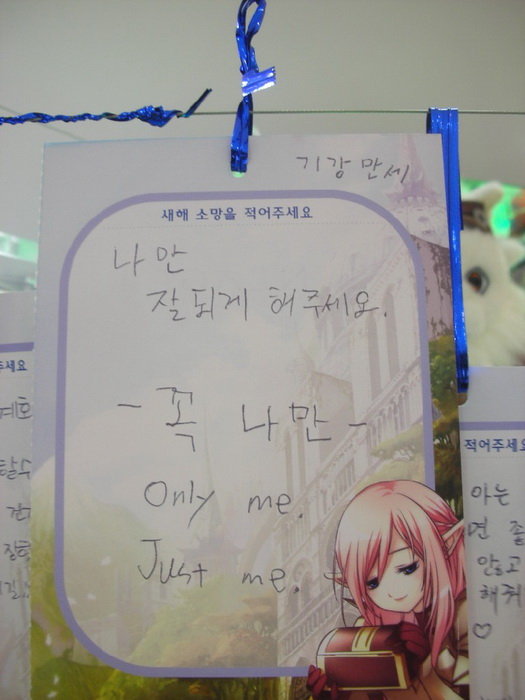 기강 만세
새해 소망을 적어주세요
나만
잘 되게 해주세요.
- 꼭 나만 -
Only me.
Just me.
주세요
적어주세요
아는
면 좋
않고
해줘
♡